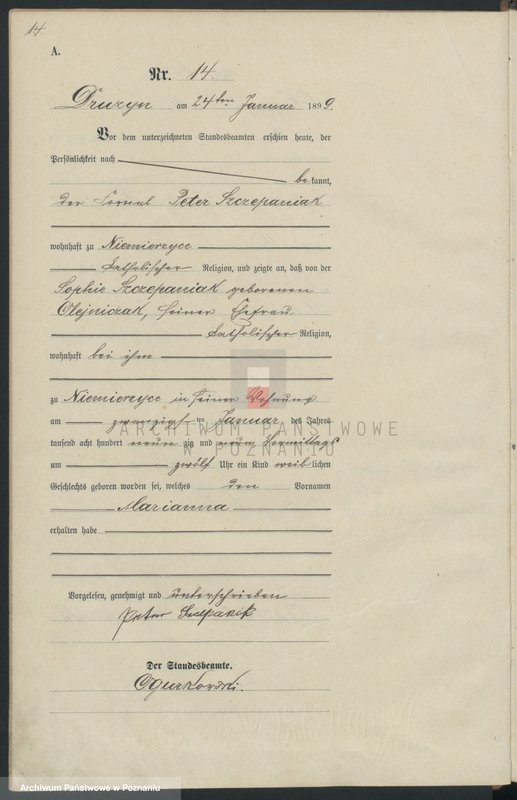 14.
A.
Nr. 14.
Druzyn am 24ten Januar 1899.
Vor dem unterzeichneten Standesbeamten erschien heute, der
Persönlichkeit nach
bekannt,
der Fornal Peter Szczepaniak
wohnhaft zu Niemierzyce
katholischer Religion, und zeigte an, daß von der
Sophie Szczepaniak geborenen
Olejniczak, seiner Ehefrau
katholischer Religion,
wohnhaft bei ihm
zu Niemierzyce in seiner Wohnung
am zwanzigsten Januar des Jahres
tausend acht hundert neunzig und neun Vormittags
um zwölf Uhr ein Kind weiblichen
Geschlechts geboren worden sei, welches den Vornamen
Marianna
erhalten habe
Vorgelesen, genehmigt und unterschrieben
Peter
Der Standesbeamte.
Ogurkowski.
ARCHIWUM PAŃSTWOWE
W POZNANIU
Archiwum Panstwowe w Poznaniu